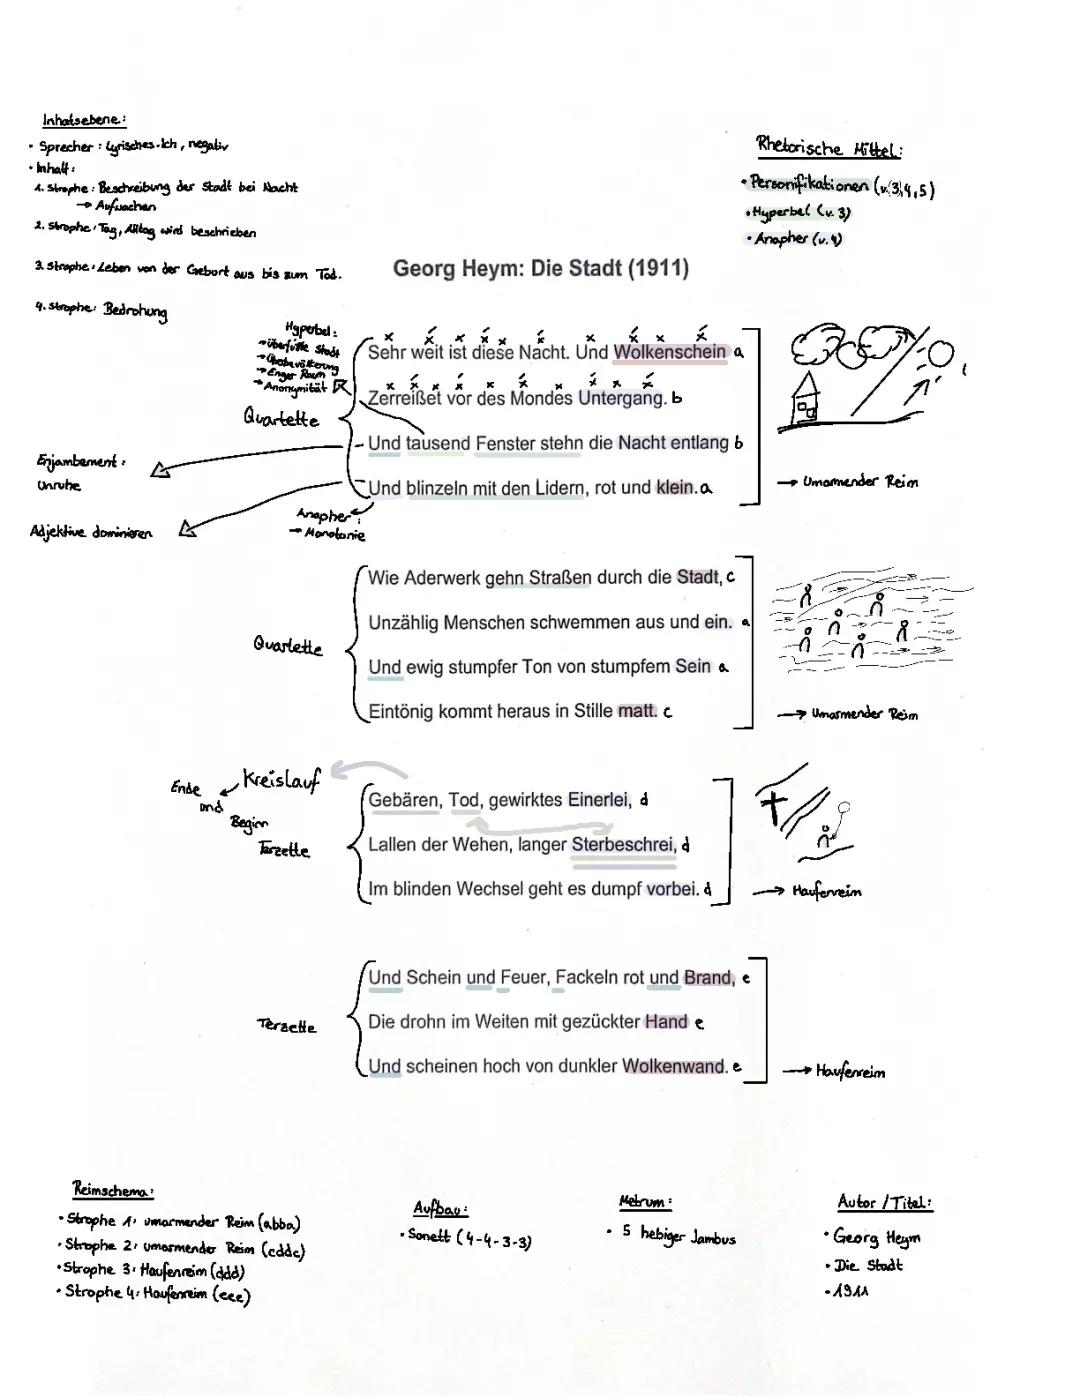 Inhatsebene:
• Sprecher: Lyrisches-Ich, negativ
• Inhalt:
1. Strophe: Beschreibung der Stadt bei Nacht
→ Aufwachen
2. Strophe: Tag, Alltag wird beschrieben
3. Strophe: Leben von der Geburt aus bis zum Tod.
4. Strophe: Bedrohung
Rhetorische Mittel:
• Personifikationen (v.3,4,5)
• Hyperbel (v. 3)
• Anapher (v. 4)
Georg Heym: Die Stadt (1911)
Hyperbel:
→ überfüllte Stadt
→ Überbevölkerung
→ Enger Raum
→ Anonymität
Quartette
Sehr weit ist diese Nacht. Und Wolkenschein a
Zerreißet vor des Mondes Untergang. b
Und tausend Fenster stehn die Nacht entlang b
Und blinzeln mit den Lidern, rot und klein. a
→ Umarmender Reim
Enjambement:
Unruhe
Adjektive dominieren
Anapher:
→ Monotonie
Quartette
Wie Aderwerk gehn Straßen durch die Stadt, c
Unzählig Menschen schwemmen aus und ein. a
Und ewig stumpfer Ton von stumpfem Sein a
Eintönig kommt heraus in Stille matt. c
→ Umarmender Reim
Kreislauf
Ende
und
Beginn
Terzette
Gebären, Tod, gewirktes Einerlei, d
Lallen der Wehen, langer Sterbeschrei, d
Im blinden Wechsel geht es dumpf vorbei. d
→ Haufenreim
Terzette
Und Schein und Feuer, Fackeln rot und Brand, e
Die drohn im Weiten mit gezückter Hand e
Und scheinen hoch von dunkler Wolkenwand. e
→ Haufenreim
Reimschema:
• Strophe 1: umarmender Reim (abba)
• Strophe 2: umarmender Reim (cddc)
• Strophe 3: Haufenreim (ddd)
• Strophe 4: Haufenreim (eee)
Aufbau:
• Sonett (4-4-3-3)
Metrum:
• 5 hebiger Jambus
Autor / Titel:
• Georg Heym
• Die Stadt
• 1911